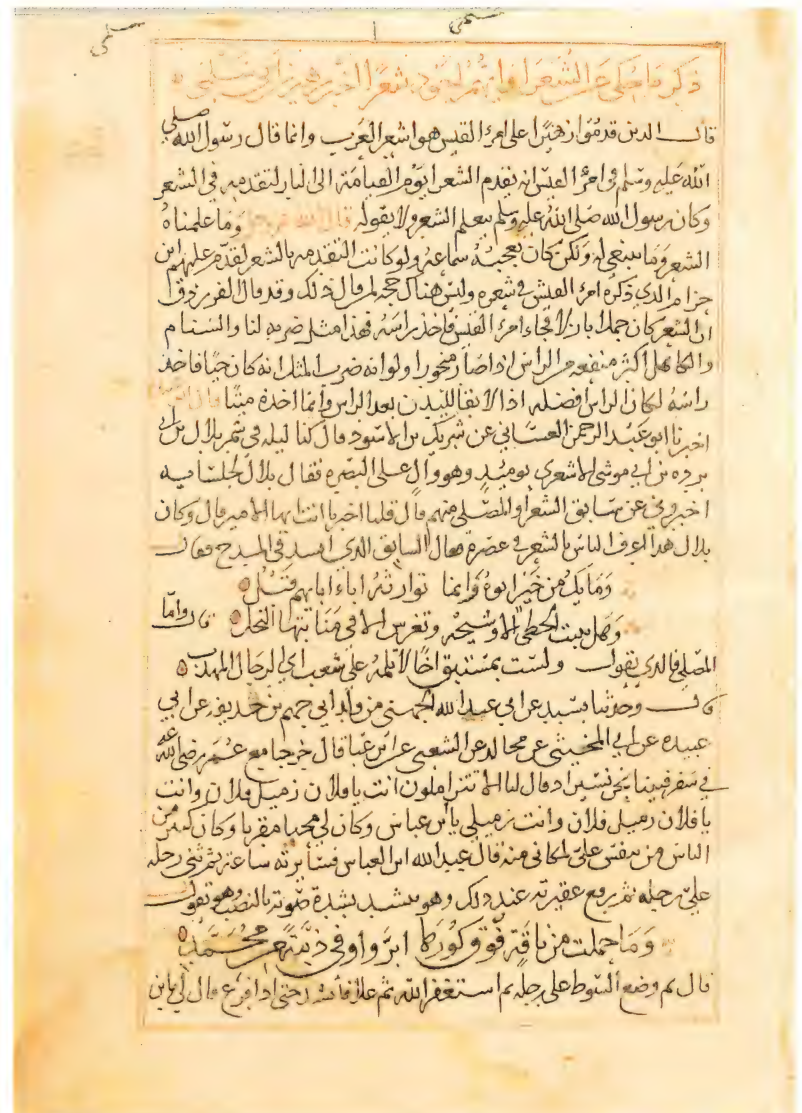 ذكر ما حكي عن الشعرا وانهم اجود شعرا اخبر زهير بن ابي سلمى
قال الذين قدموا زهيرا على امرئ القيس هو اشعر العرب وانما قال رسول الله صلى
الله عليه وسلم في امرئ القيس انه يقدم الشعرا يوم القيامة الى النار لتقدمه في الشعر
وكان رسول الله صلى الله عليه وسلم يعلم الشعر ولا يقوله قال الله عز وجل وما علمناه
الشعر وما ينبغي له ولكن كان يعجبه سماعه ولو كانت التقدمه بالشعر لقدم عليهم ابن
حزام الذي ذكره امرؤ القيس في شعره وليس هناك حجه لمن قال ذلك وقد قال الفرزدق
ان الشعر كان جملا بازلا فجاء امرؤ القيس فاخذ راسه فهذا مثل ضربه لنا والسنام
والكاهل اكثر منفعه من الراس اذا صار منحورا ولو انه ضرب المثل انه كان حيا فاخذ
راسه لكان الراس افضله اذ لا بقا للبدن بعد الراس وانما اخذه ميتا قال
اخبرنا ابو عبد الرحمن الغساني عن شريك بن الاسود قال كنا ليله في سمر بلال بن ابي
برده بن ابي موسى الاشعري يوميذ وهو وال على البصره فقال بلال لجلسايه
اخبروني عن سابق الشعرا والمصلى منهم قال قلنا اخبرنا انت ايها الامير قال وكان
بلال هذا اعرف الناس بالشعر في عصره فقال السابق الذي في المدح فقال
وما يك من خير اتوه وانما توارثه اباء ابايهم قبل
وهل ينبت الخطي الا وشيجه وتغرس الا في منابتها النخل قال واما
المصلى فالذي يقول ولست بمستبق اخا لا تلمه على شعث اي الرجال المهذب
قال وحدثنا سنيد عن ابي عبد الله الجهمي من ولد ابي جهم بن حذيفه عن ابي
عبيده عن ابي عن مجالد عن الشعبي عن ابن عبا قال خرجنا مع عمر رضي الله عنه
في سفر فبينا نحن نسير اذ قال لنا الا تتزاملون انت يا فلان زميل فلان وانت
يا فلان زميل فلان وانت زميلي يا ابن عباس وكان لي محبا مقربا وكان كثير من
الناس من ينفس علي لمكاني منه قال عبد الله ابن العباس فسايرته ساعة ثم ثنى رجله
على رحله ثم رفع عقيرته عند ذلك وهو ينشد بشدة صوته بالنصب وهو يقول
وما حملت من ناقة فوق كورها ابر واوفى ذمة من محمد
قال ثم وضع السوط على رحله ثم استغفر الله ثم علا فانشد حتى اذا فرغ قال لي يا ابن